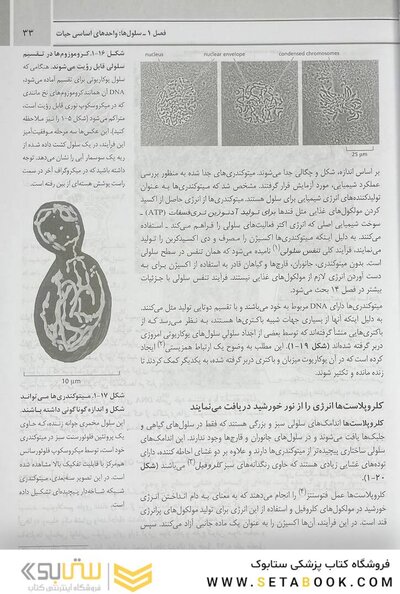 فصل ۱ ـ سلول‌ها: واحدهای اساسی حیات
۳۳
شکل ۱۶-۱. کروموزوم‌ها در تقسیم
سلولی قابل رؤیت می‌شوند. هنگامی که
سلول یوکاریوتی برای تقسیم آماده می‌شود،
DNA آن همانند کروموزوم‌های نخ مانندی
که در میکروسکوپ نوری قابل رؤیت است،
متراکم می‌شود (شکل ۵-۱ را نیز ملاحظه
کنید). این عکس‌ها سه مرحله موفقیت‌آمیز
این فرآیند، در یک سلول کشت داده شده از
ریه یک سوسمار آبی را نشان می‌دهد. توجه
داشته باشید که در میکروگراف آخر در سمت
راست پوشش هسته‌ای از بین رفته است.
nucleus
nuclear envelope
condensed chromosomes
25 µm
بر اساس اندازه، شکل و چگالی جدا می‌شوند. میتوکندری‌های جدا شده به منظور بررسی
عملکرد شیمیایی، مورد آزمایش قرار گرفتند. مشخص شد که میتوکندری‌ها به عنوان
تولیدکننده‌های انرژی شیمیایی برای سلول هستند. میتوکندری‌ها از انرژی حاصل از اکسید
کردن مولکول‌های غذایی مثل قندها برای تولید آدنوزین تری‌فسفات (ATP) ـ
سوخت شیمیایی اصلی که انرژی اکثر فعالیت‌های سلولی را فراهم می‌کند ـ استفاده
می‌کنند. به دلیل اینکه میتوکندری‌ها اکسیژن را مصرف و دی اکسیدکربن را تولید
می‌نمایند، فرآیند کلی تنفس سلولی(۱) نامیده می‌شود که همان تنفس در سطح سلولی
است. بدون میتوکندری، جانوران، قارچ‌ها و گیاهان قادر به استفاده از اکسیژن برای به
دست آوردن انرژی لازم از مولکول‌های غذایی نیستند. فرآیند تنفس سلولی با جزئیات
بیشتر در فصل ۱۴ بحث می‌شود.
میتوکندری‌ها دارای DNA مربوط به خود می‌باشند و با تقسیم دوتایی تولید مثل می‌کنند.
به دلیل اینکه آنها از بسیاری جهات شبیه باکتری‌ها هستند، به نظر می‌رسد که از
باکتری‌هایی منشأ گرفته‌اند که توسط بعضی از اجداد سلول‌های یوکاریوتی امروزی
دربر گرفته شده‌اند (شکل ۱۹-۱). این مطلب به وضوح یک ارتباط همزیستی(۲) ایجاد
کرده است که در آن یوکاریوت میزبان و باکتری دربر گرفته شده، به یکدیگر کمک کردند تا
زنده مانده و تکثیر شوند.
10 µm
شکل ۱۷-۱. میتوکندری‌ها می‌توانند
شکل و اندازه گوناگونی داشته باشند.
این سلول مخمری جوانه زننده، که حاوی
یک پروتئین فلورسنت سبز در میتوکندری
خود است، توسط میکروسکوپ فلورسانس
هم‌مرکز با قابلیت تفکیک بالا مشاهده شده
است. در این تصویر سه‌بعدی، میتوکندری
شبکه شاخه‌دار پیچیده‌ای تشکیل داده
است.
کلروپلاست‌ها انرژی را از نور خورشید دریافت می‌نمایند
کلروپلاست‌ها اندامک‌های سلولی سبز و بزرگی هستند که فقط در سلول‌های گیاهی و
جلبک‌ها یافت می‌شوند و در سلول‌های جانوران و قارچ‌ها وجود ندارند. این اندامک‌های
سلولی ساختاری پیچیده‌تر از میتوکندری‌ها دارند و علاوه بر دو غشای احاطه کننده، دارای
توده‌های غشایی زیادی هستند که حاوی رنگدانه‌های سبز کلروفیل(۳) می‌باشند (شکل
۲۰-۱).
کلروپلاست‌ها عمل فتوسنتز(۴) را انجام می‌دهند که به معنای به دام انداختن انرژی
خورشید در مولکول‌های کلروفیل و استفاده از این انرژی برای تولید مولکول‌های پرانرژی
قند است. در این فرآیند، آن‌ها اکسیژن را به عنوان یک ماده جانبی آزاد می‌کنند. سپس
فروشگاه کتاب پزشکی ستابوک
WWW.SETABOOK.COM
فروشگاه اینترنتی کتاب